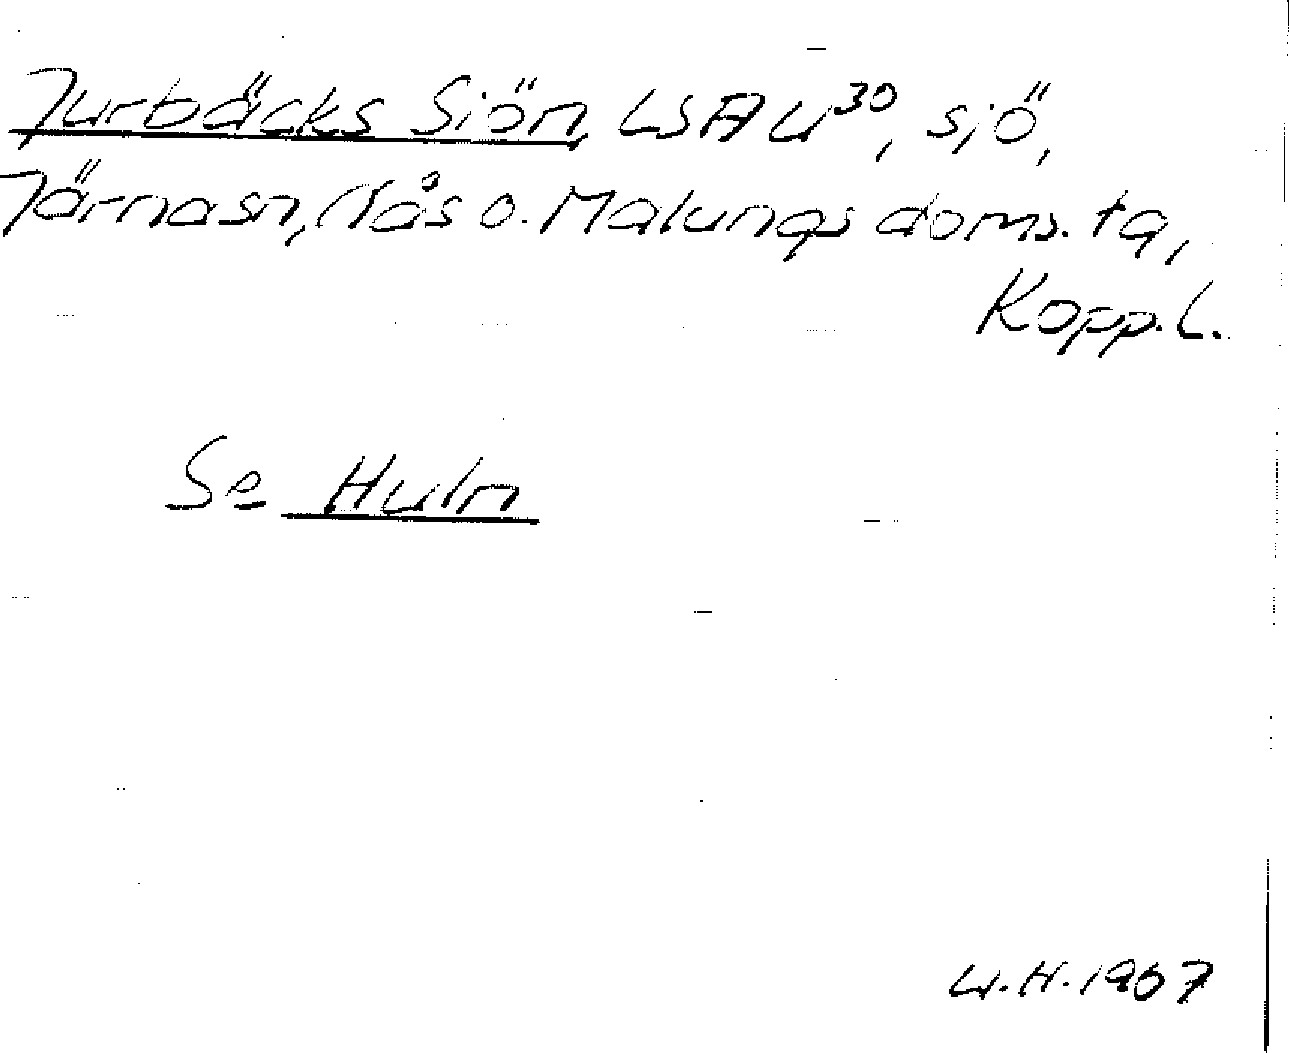 Jurbäcks Siön, LSA U³⁰, sjö,
Järnasn, Nås o. Malungs doms. tg,
Kopp. l.
Se Huln
U.H. 1967